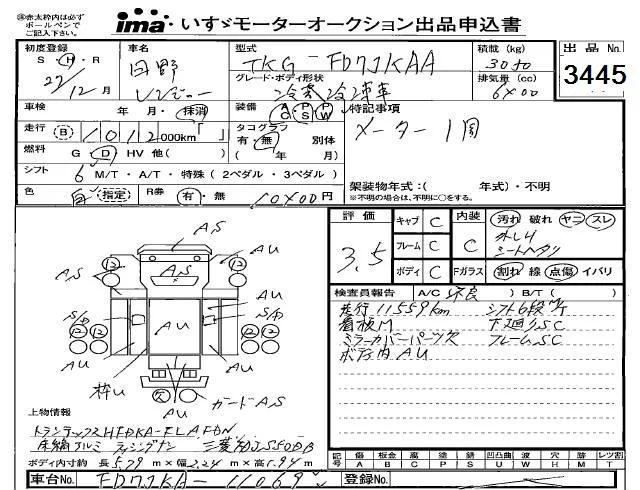 ※赤太枠内は必ず
ボールペンで
ご記入下さい。
ima いすゞモーターオークション出品申込書
初度登録 車名 型式 積載 (kg) 出品 No.
S・H・R 日野 TKG-FD7JKAA 3050 3445
27/12月 レンジャー グレード・ボディ形状 冷蔵冷凍車 排気量 (cc) 6400
車検 年 月・抹消 装備 AC PS PW 特記事項
走行 B 1012,000km「 」 タコグラフ 有・無 別体 メーター1周
燃料 G・D・HV 他( ) ( 年 月)
シフト 6 M/T・A/T・特殊(2ペダル・3ペダル) 架装物年式:( 年式)・不明
色 白 指定 R券 有・無 10400円 ※不明の場合は、不明に○をする。
評価 キャブ C 内装 汚れ 破れ ヤニ スレ
3.5 フレーム C C
シートヘタリ
ボディ C Fガラス 割れ 線 点傷 イバリ
検査員報告 A/C(不良 ) B/T( )
走行11559km シフト6段M/T
看板M 下廻りSC
ミラーカバーパーツ欠 フレームSC
ボデ内AU
AS AU
12 12
AS AS AU
AU
S/P AU S/P
12 12 12 12
AU AU
枠U 欠 ガードAS
上物情報
トランテックスHFDKA-FLAFDN
床縞アルミ ラッシング 三菱
ボディ内寸約 長5.79 m×幅2.24 m×高1.94 m
記号 傷 板金 腐 塗 錆 凹 凸 曲 波 穴 跡 補 レツ割
A B C P S U W H M T
車台No. FD7JKA-11069 登録No.